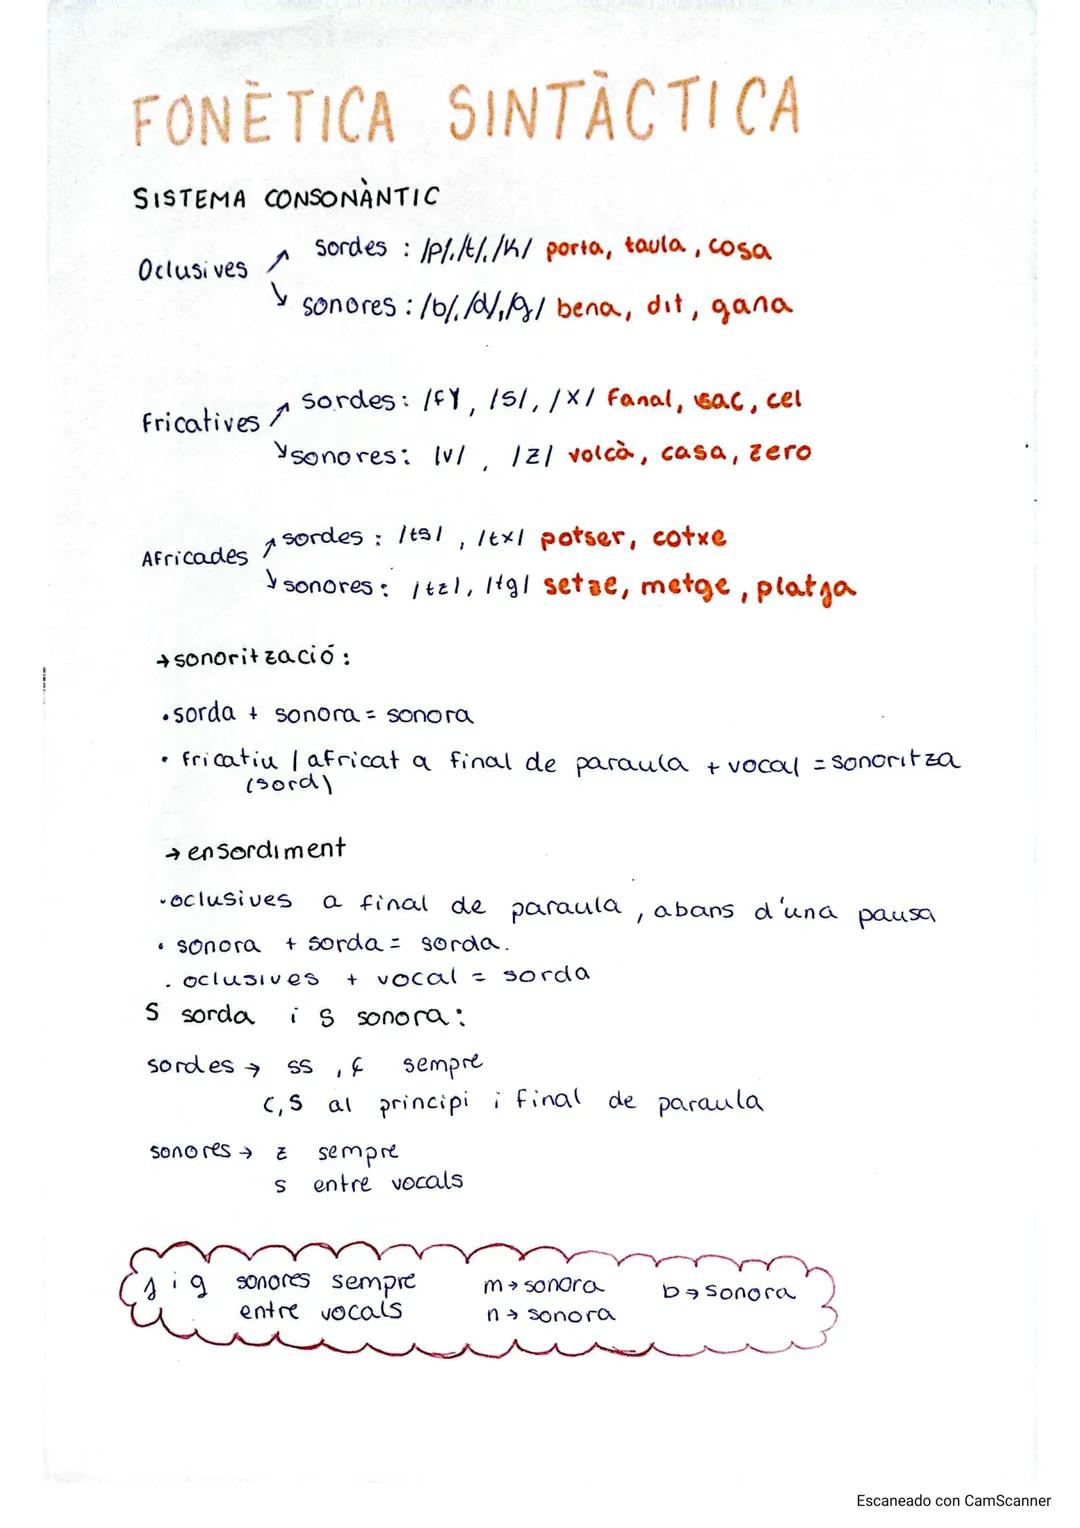 FONÈTICA SINTÀCTICA
SISTEMA CONSONÀNTIC
Oclusives
sordes : /p/, /t/, /k/ porta, taula, cosa
sonores : /b/, /d/, /g/ bena, dit, gana
Fricatives
sordes: /f/, /s/, /x/ fanal, sac, cel
sonores: /v/, /z/ volcà, casa, zero
Africades
sordes : /ts/, /tx/ potser, cotxe
sonores: /tz/, /tg/ setze, metge, platja
→ sonorització:
• sorda + sonora = sonora
• fricatiu / africat a final de paraula + vocal = sonoritza
(sord)
→ ensordiment
• oclusives a final de paraula, abans d'una pausa
• sonora + sorda = sorda.
. oclusives + vocal = sorda
S sorda i s sonora:
sordes → ss, ç sempre
c, s al principi i final de paraula
sonores → z sempre
s entre vocals
j i g sonores sempre m → sonora b → sonora
entre vocals n → sonora
Escaneado con CamScanner